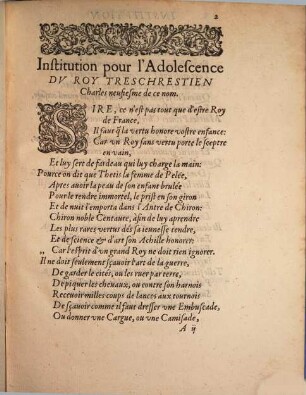 2
Institution pour l'Adolescence
DV ROY TRESCHRESTIEN
Charles neufiesme de ce nom.
SIRE, ce n'est pas tout que d'estre Roy
de France,
Il faut q̃ la vertu honore vostre enfance:
Car vn Roy sans vertu porte le sceptre
en vain,
Et luy sert de fardeau qui luy charge la main:
Pource on dit que Thetis la femme de Pelée,
Apres auoir la peau de son enfant brulée
Pour le rendre immortel, le prist en son giron
Et de nuit l'emporta dans l'Antre de Chiron:
Chiron noble Centaure, afin de luy aprendre
Les plus rares vertus dés sa ieunesse tendre,
Et de science & d'art son Achille honorer:
„ Car l'esprit d'vn grand Roy ne doit rien ignorer.
Il ne doit seulement sçauoir l'art de la guerre,
De garder les cités, ou les ruer par terre,
De piquer les cheuaux, ou contre son harnois
Receuoir milles coups de lances aux tournois
De sçauoir comme il faut dresser vne Embuscade,
Ou donner vne Cargue, ou vne Camisade,
A ij